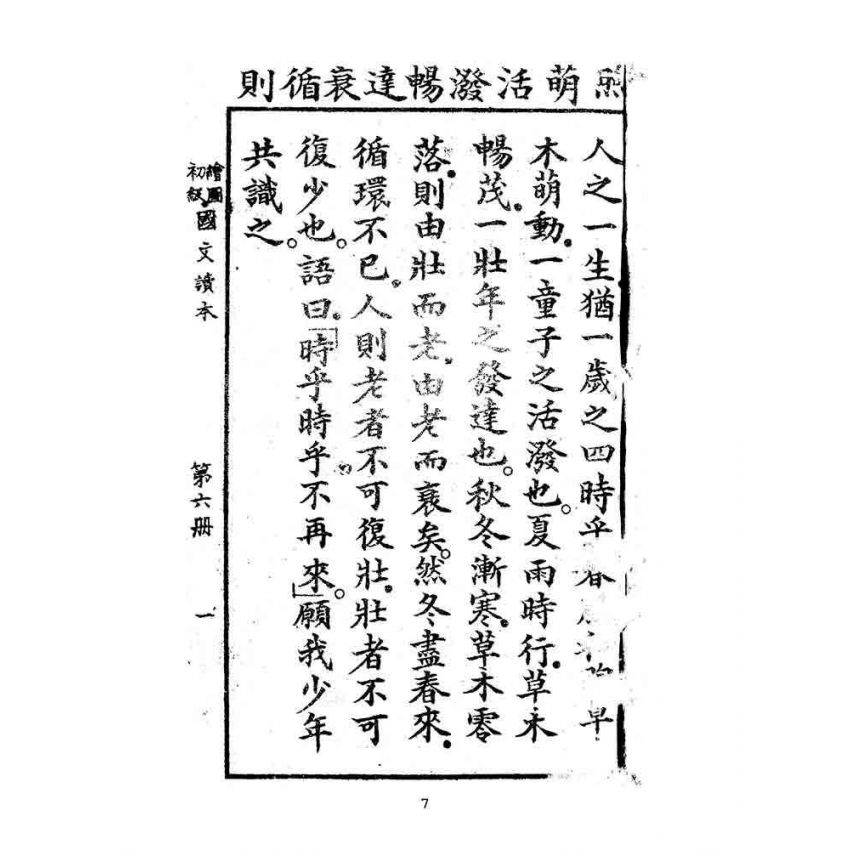 萌活潑暢達衰循則
人之一生猶一歲之四時乎春早
木萌動一童子之活潑也。夏雨時行草木
暢茂一壯年之發達也。秋冬漸寒草木零
落則由壯而老由老而衰矣。然冬盡春來
循環不已人則老者不可復壯壯者不可
復少也。語曰「時乎時乎不再來」。願我少年
共識之。
繪圖
初級
國文讀本
第六册
一
7